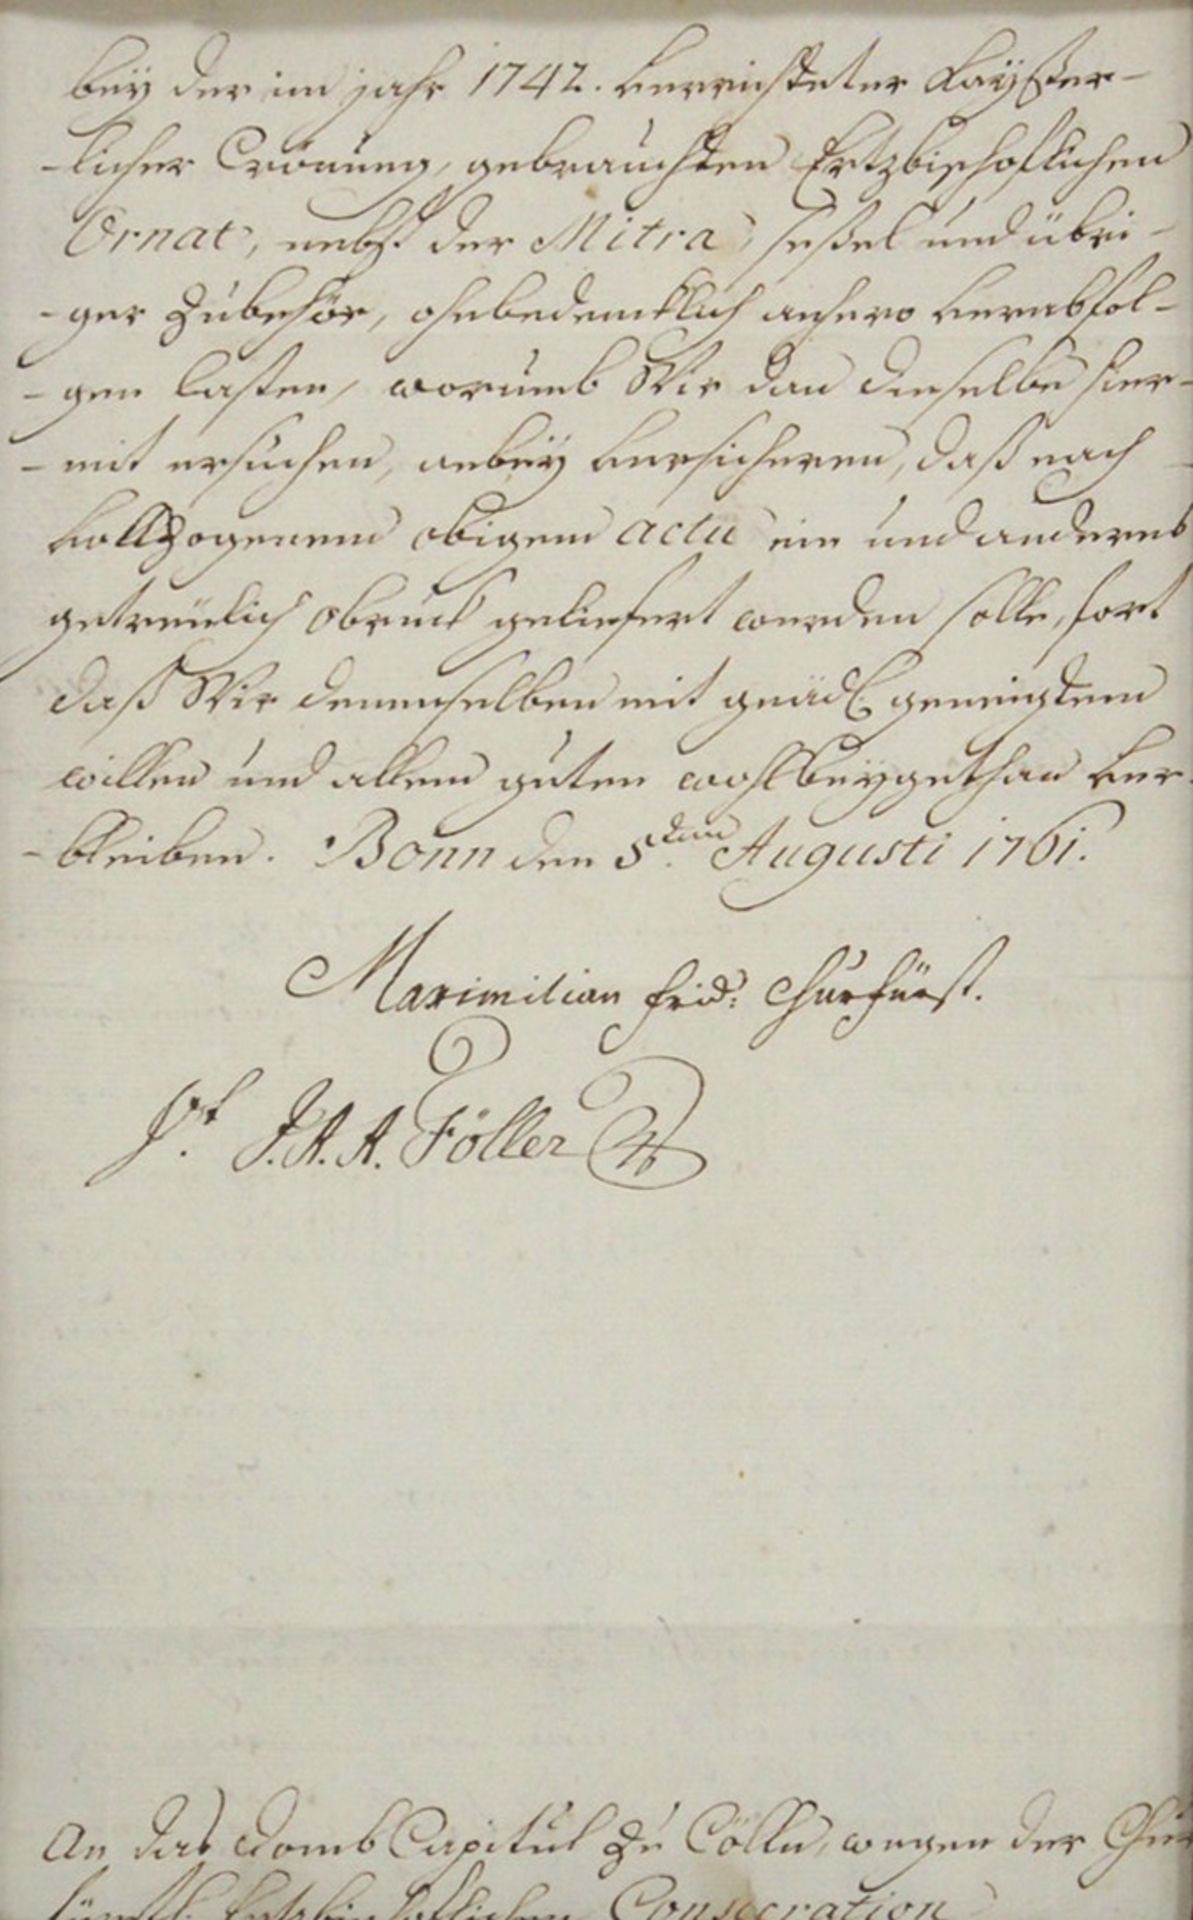 bey der im jahr 1742. verrichteter Kayßer-
-licher Crönung, gebrauchten Ertzbischoflichen
Ornat, nebst der Mitra, seßel und übri-
-ger Zubehör, ohnbedencklich anhero verabfol-
-gen laßen, worumb Wir dan dieselbe hier-
-mit ersuchen, anbey versicheren, daß nach
vollzogenem obigem actu ein und anderes
getreülich zuruck geliefert werden solle, fort
daß Wir denenselben mit gnädl geneigtem
willen und allem guten wohl beygethan ver-
-bleiben. Bonn den 5.ten Augusti 1761.
Maximilian Frid: Churfürst.
Vt J.A.A. Föller
An das Domb Capitul zu Cölln, wegen der Chur
fürstl. Ertzbischoflichen Consecration